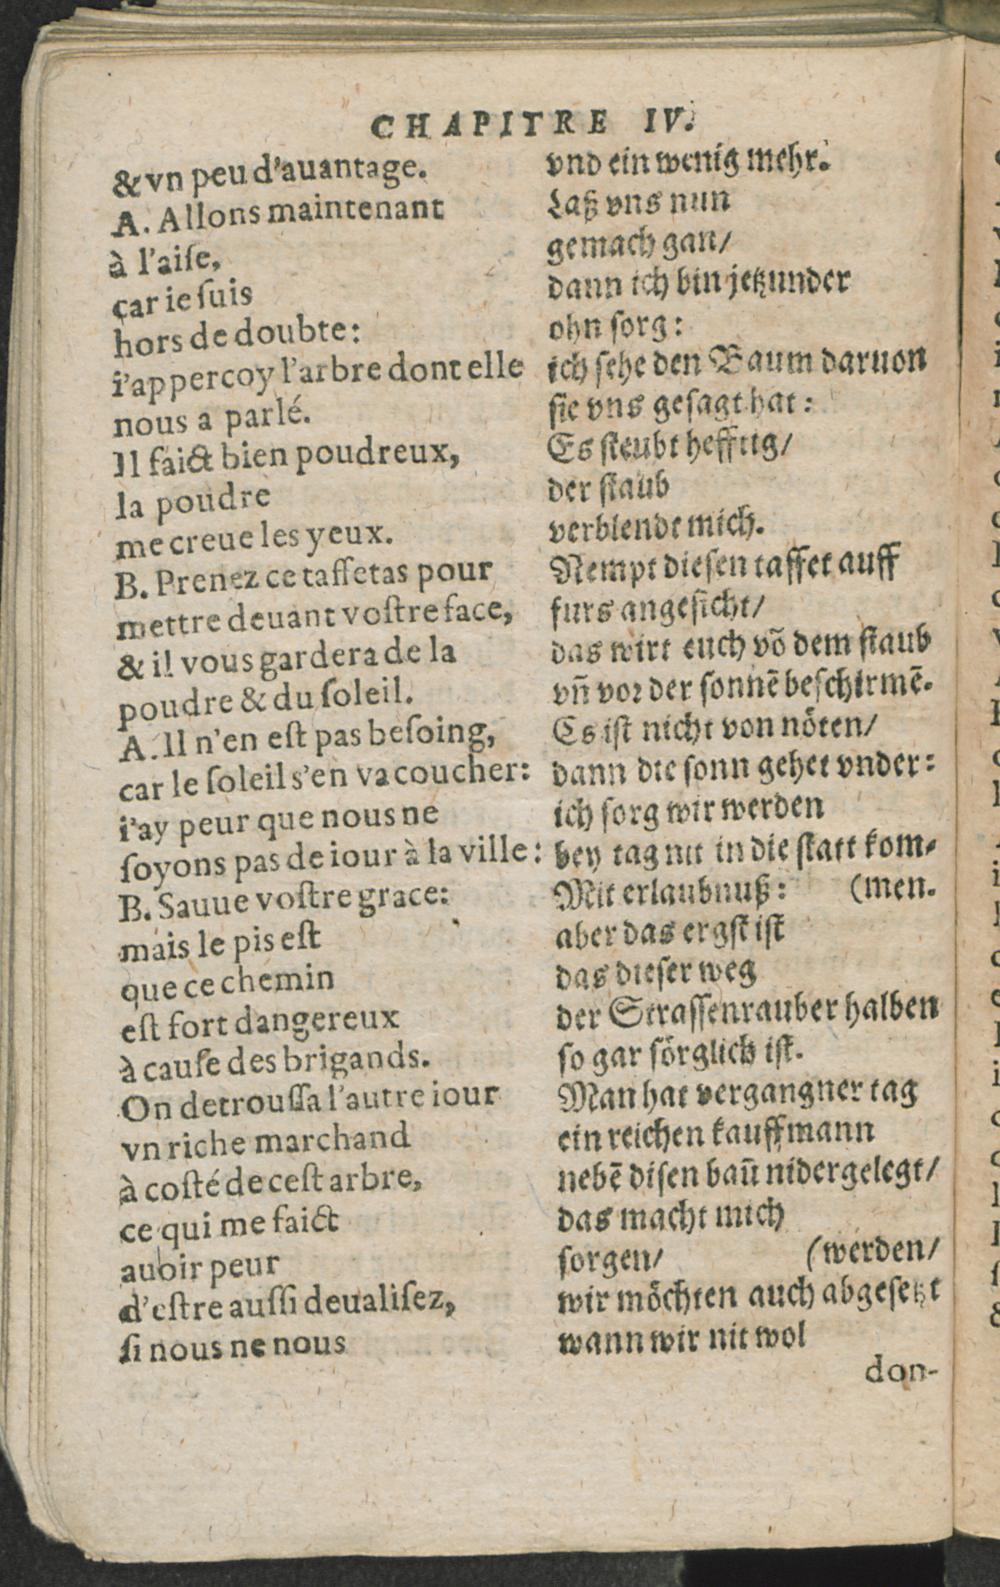 CHAPITRE IV.
& vn peu d'auantage.
A. Allons maintenant
à l'aiſe,
car ie ſuis
hors de doubte:
i'appercoy l'arbre dont elle
nous a parlé.
Il faict bien poudreux,
la poudre
me creue les yeux.
B. Prenez ce taffetas pour
mettre deuant voſtre face,
& il vous gardera de la
poudre & du ſoleil.
A. Il n'en eſt pas beſoing,
car le ſoleil s'en va coucher:
i'ay peur que nous ne
ſoyons pas de iour à la ville:
B. Sauue voſtre grace:
mais le pis eſt
que ce chemin
eſt fort dangereux
à cauſe des brigands.
On detrouſſa l'autre iour
vn riche marchand
à coſté de ceſt arbre,
ce qui me faict
auoir peur
d'eſtre auſſi deualiſez,
ſi nous ne nous
vnd ein wenig mehr.
Laß vns nun
gemach gan/
dann ich bin jetzunder
ohn ſorg:
ich ſehe den Baum daruon
ſie vns geſagt hat:
Es ſteubt hefftig/
der ſtaub
verblendt mich.
Nempt dieſen taffet auff
furs angeſicht/
das wirt euch võ dem ſtaub
vñ vor der ſonnẽ beſchirmẽ.
Es iſt nicht von nöten/
dann die ſonn gehet vnder:
ich ſorg wir werden
bey tag nit in die ſtatt kom⸗
Mit erlaubnuß: (men.
aber das ergſt iſt
das dieſer weg
der Straſſenrauber halben
ſo gar ſörglich iſt.
Man hat vergangner tag
ein reichen kauffmann
nebẽ diſen baũ nidergelegt/
das macht mich
ſorgen/ (werden/
wir möchten auch abgeſetzt
wann wir nit wol
don-